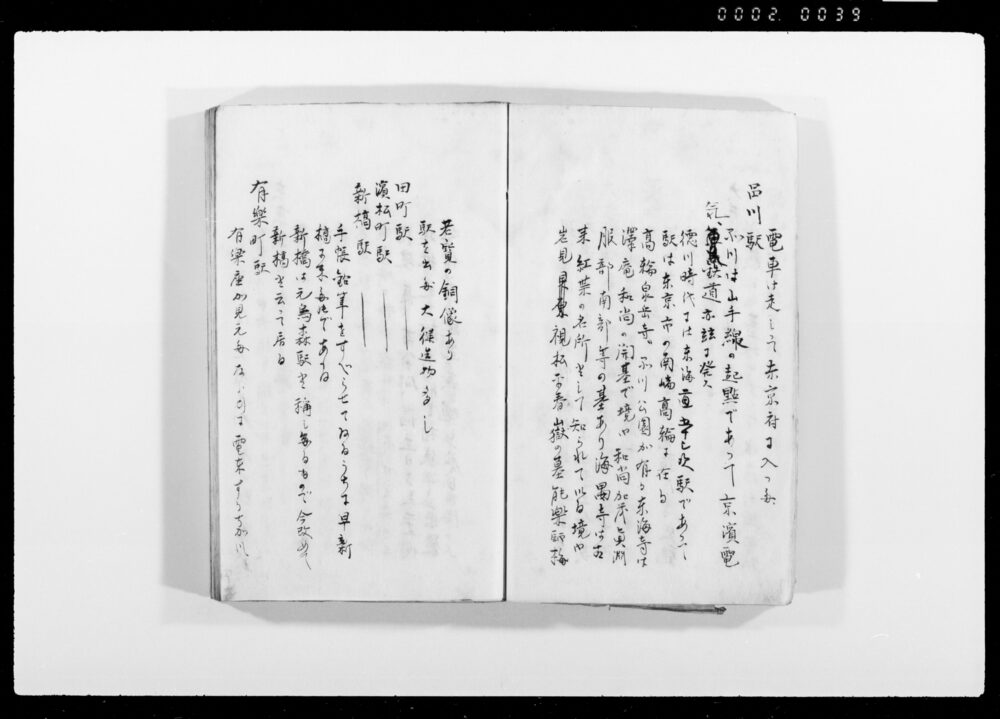 0002.0039
電車は走って東京府に入った
品川駅
品川は山手線の起點であって京濱電
気、鉄道亦茲に發す
徳川時代には東海道五十三次駅であって
駅は東京市の南端高輪に在る
高輪泉岳寺。品川公園が有る東海寺は
澤庵和尚の開基で境内和尚加茂真淵
服部南部等の墓あり海晏寺は古
来紅葉の名所として知られて以る境内
岩見視松平春嶽の墓能樂師梅
若實の銅像あり
駅を出た大建造物なし
田町駅
濱松町駅
新橋駅
手帳鉛筆をすべらせてゐるうちに早新
橋に来たのである
新橋は元烏森駅と称したもので今改めて
新橋と云って居る
有樂町駅
有樂座が見えた